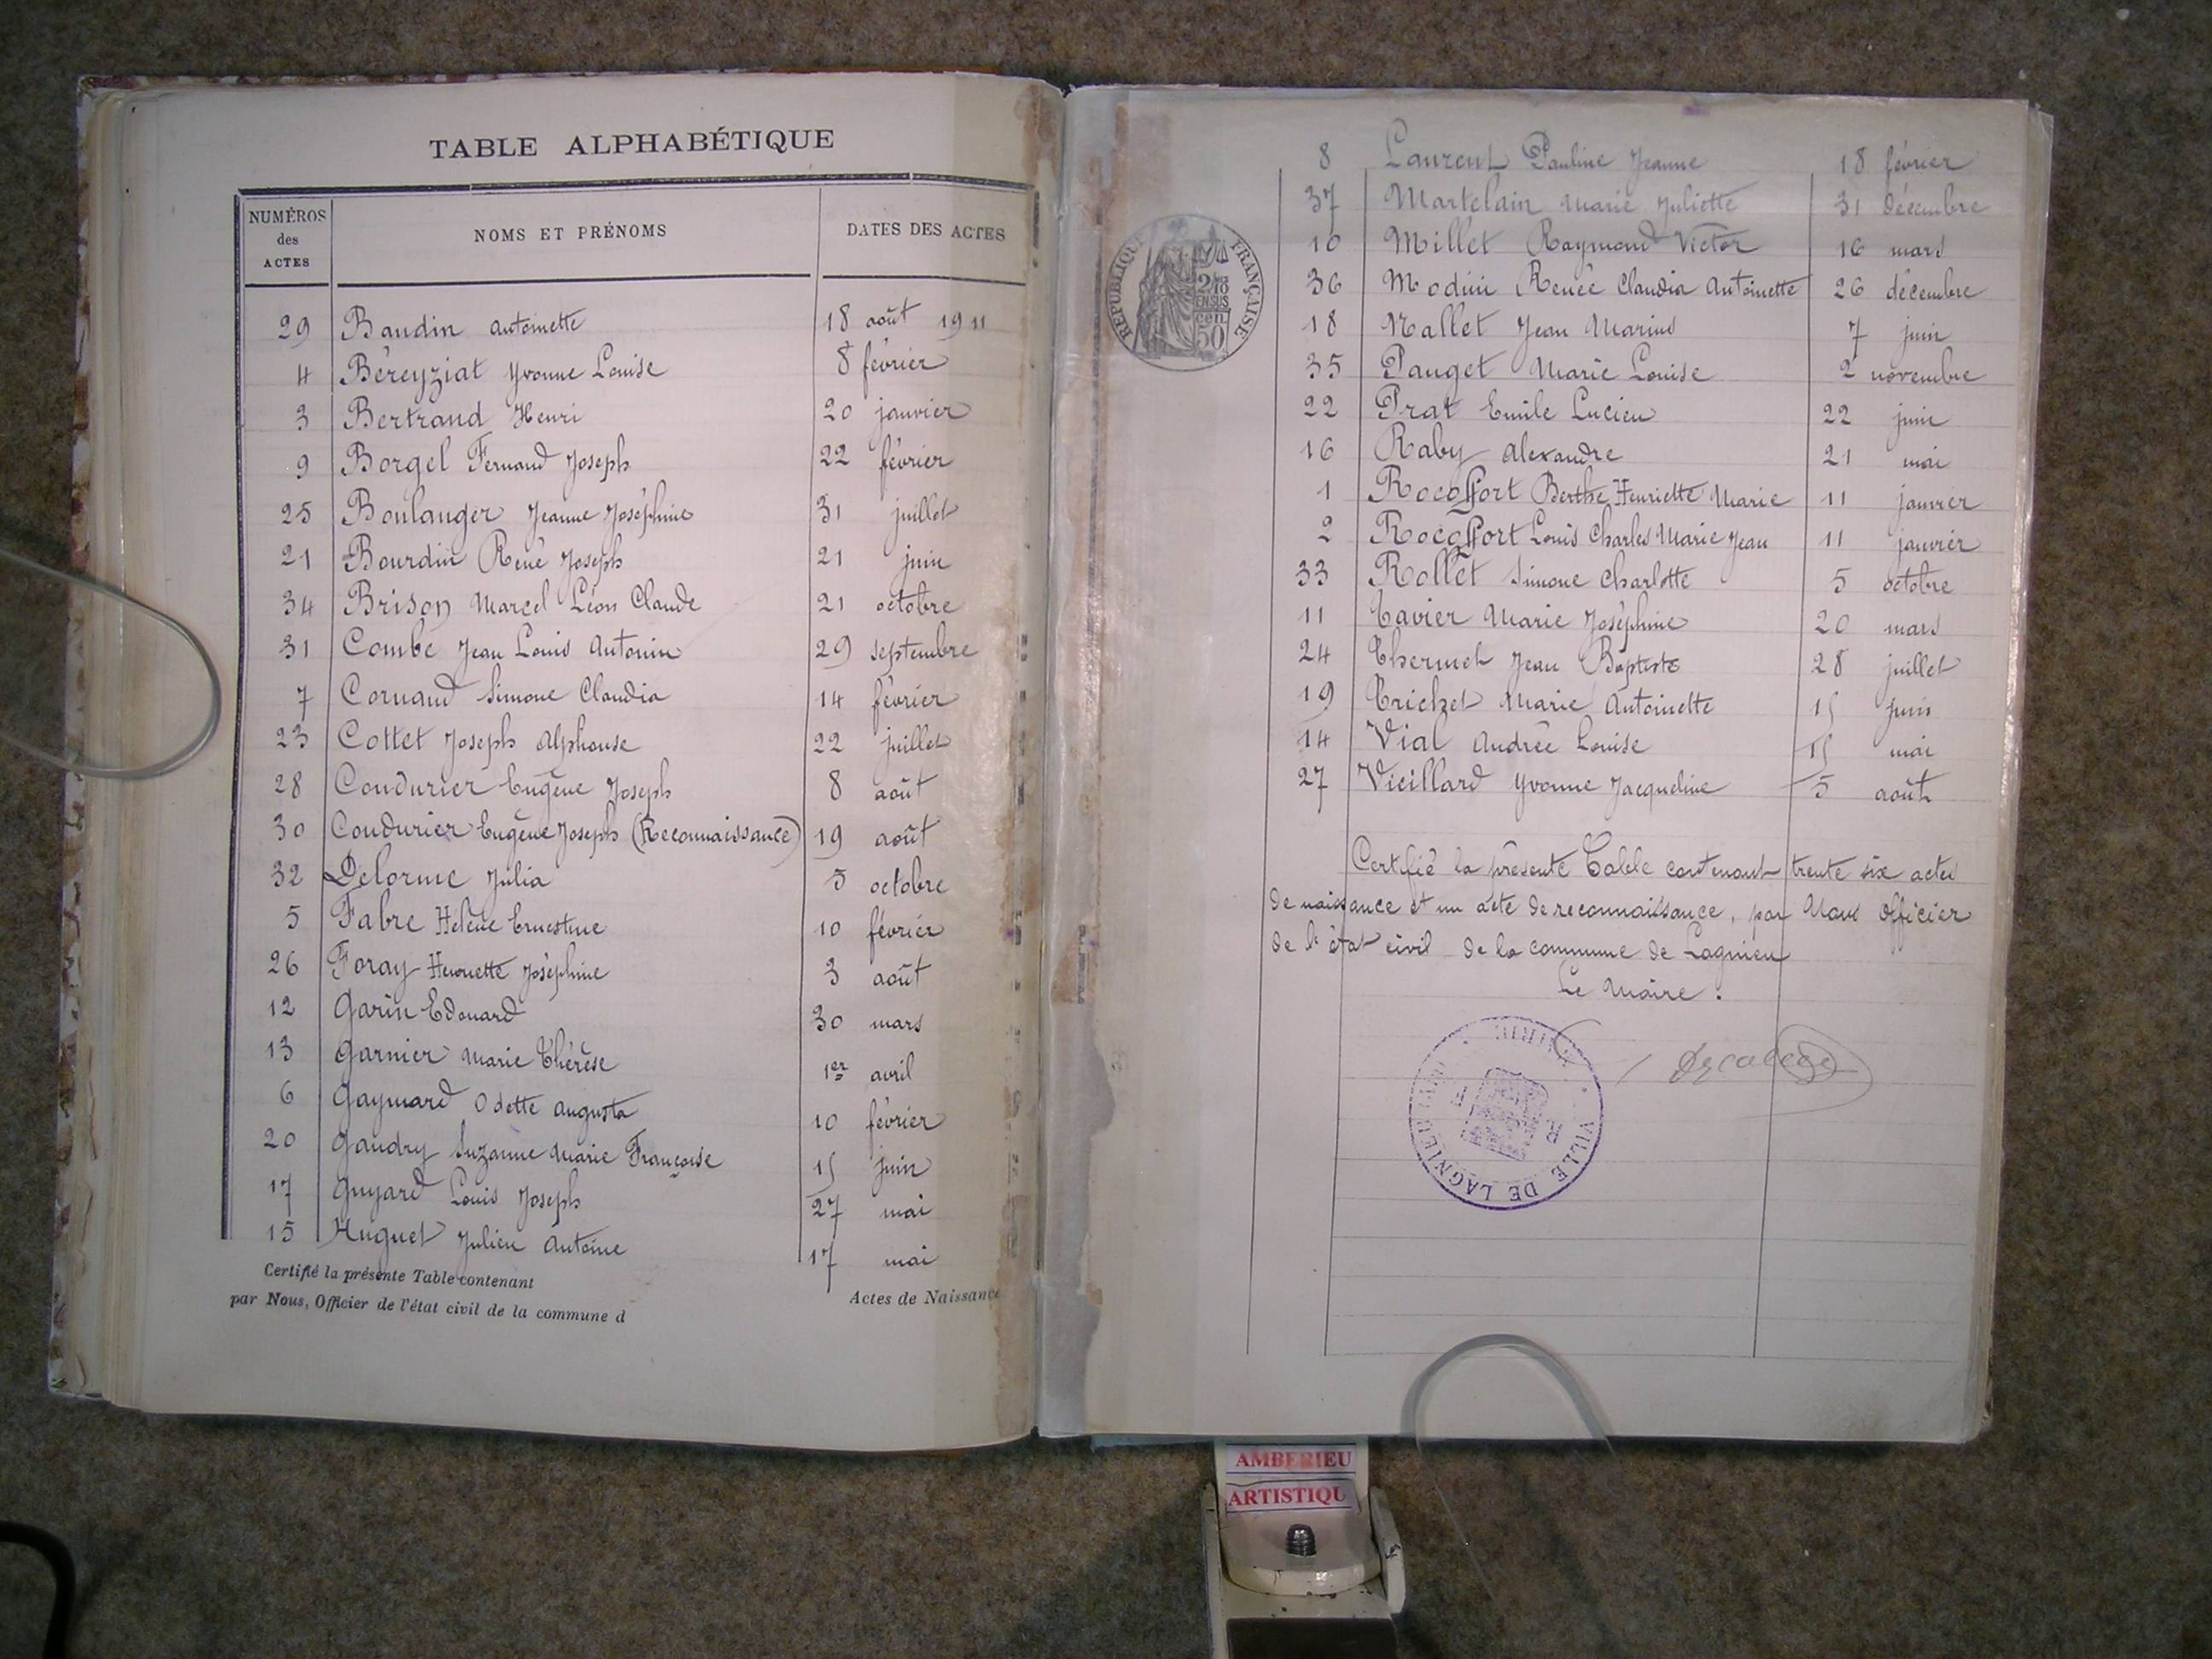 TABLE ALPHABÉTIQUE
NUMÉROS des ACTES NOMS ET PRÉNOMS DATES DES ACTES
29 Baudin Antoinette 18 août 1911
4 Béreyziat Yvonne Louise 8 février
3 Bertrand Henri 20 janvier
9 Borgel Fernand Joseph 22 février
25 Boulanger Jeanne Joséphine 31 juillet
21 Bourdin René Joseph 21 juin
34 Brison Marcel Léon Claude 21 octobre
31 Combe Jean Louis Antonin 29 septembre
7 Cornand Simone Claudia 14 février
23 Cottet Joseph Alphonse 22 juillet
28 Coudurier Eugène Joseph 8 août
30 Coudurier Eugène Joseph (Reconnaissance) 19 août
32 Delorme Julia 5 octobre
5 Fabre Hélène Ernestine 10 février
26 Foray Henriette Joséphine 3 août
12 Garin Edouard 30 mars
13 Garnier Marie Thérèse 1er avril
6 Gaymard Odette Augusta 10 février
20 Gaudry Suzanne Marie Françoise 15 juin
17 Guyard Louis Joseph 27 mai
15 Huguet Julien Antoine 17 mai
Certifié la présente Table contenant Actes de Naissance
par Nous, Officier de l'état civil de la commune d
RÉPUBLIQUE FRANÇAISE
2/10
EN SUS
cen.
50
8 Laurent Pauline Jeanne 18 février
37 Martelain Marie Juliette 31 décembre
10 Millet Raymond Victor 16 mars
36 Modini Renée Claudia Antoinette 26 décembre
18 Nallet Jean Marius 7 juin
35 Pauget Marie Louise 2 novembre
22 Prat Emile Lucien 22 juin
16 Raby Alexandre 21 mai
1 Rocoffort Berthe Henriette Marie 11 janvier
2 Rocoffort Louis Charles Marie Jean 11 janvier
33 Rollet Simone Charlotte 5 octobre
11 Tavier Marie Joséphine 20 mars
24 Thermet Jean Baptiste 28 juillet
19 Trichet Marie Antoinette 15 juin
14 Vial Andrée Louise 15 mai
27 Vieillard Yvonne Jacqueline 5 août
Certifié la présente Table contenant trente six actes
de naissance et un acte de reconnaissance, par Nous Officier
de l'état civil de la commune de Lagnieu
Le Maire.
MAIRIE
R F
VILLE DE LAGNIEU
AMBERIEU
ARTISTIQU